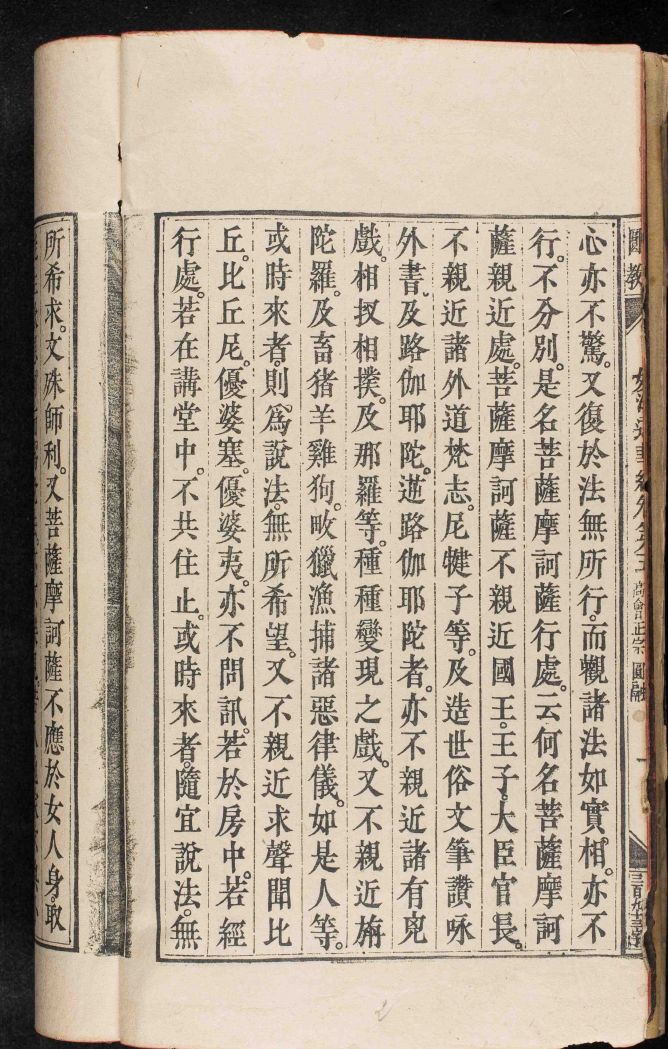 圓教
高會正宗 圓融
心亦不驚。又復於法無所行。而觀諸法如實相。亦不
行。不分別。是名菩薩摩訶薩行處。云何名菩薩摩訶
薩親近處。菩薩摩訶薩不親近國王。王子。大臣官長。
不親近諸外道梵志。尼犍子等。及造世俗文筆讚咏
外書。及路伽耶陀。逆路伽耶陀者。亦不親近諸有兇
戲。相扠相撲。及那羅等。種種變現之戲。又不親近旃
陀羅。及畜猪羊雞狗。畋獵漁捕諸惡律儀。如是人等。
或時來者。則爲說法。無所希望。又不親近求聲聞比
丘。比丘尼。優婆塞。優婆夷。亦不問訊。若於房中。若經
行處。若在講堂中。不共住止。或時來者。隨宜說法。無
所希求。文殊師利。又菩薩摩訶薩不應於女人身。取